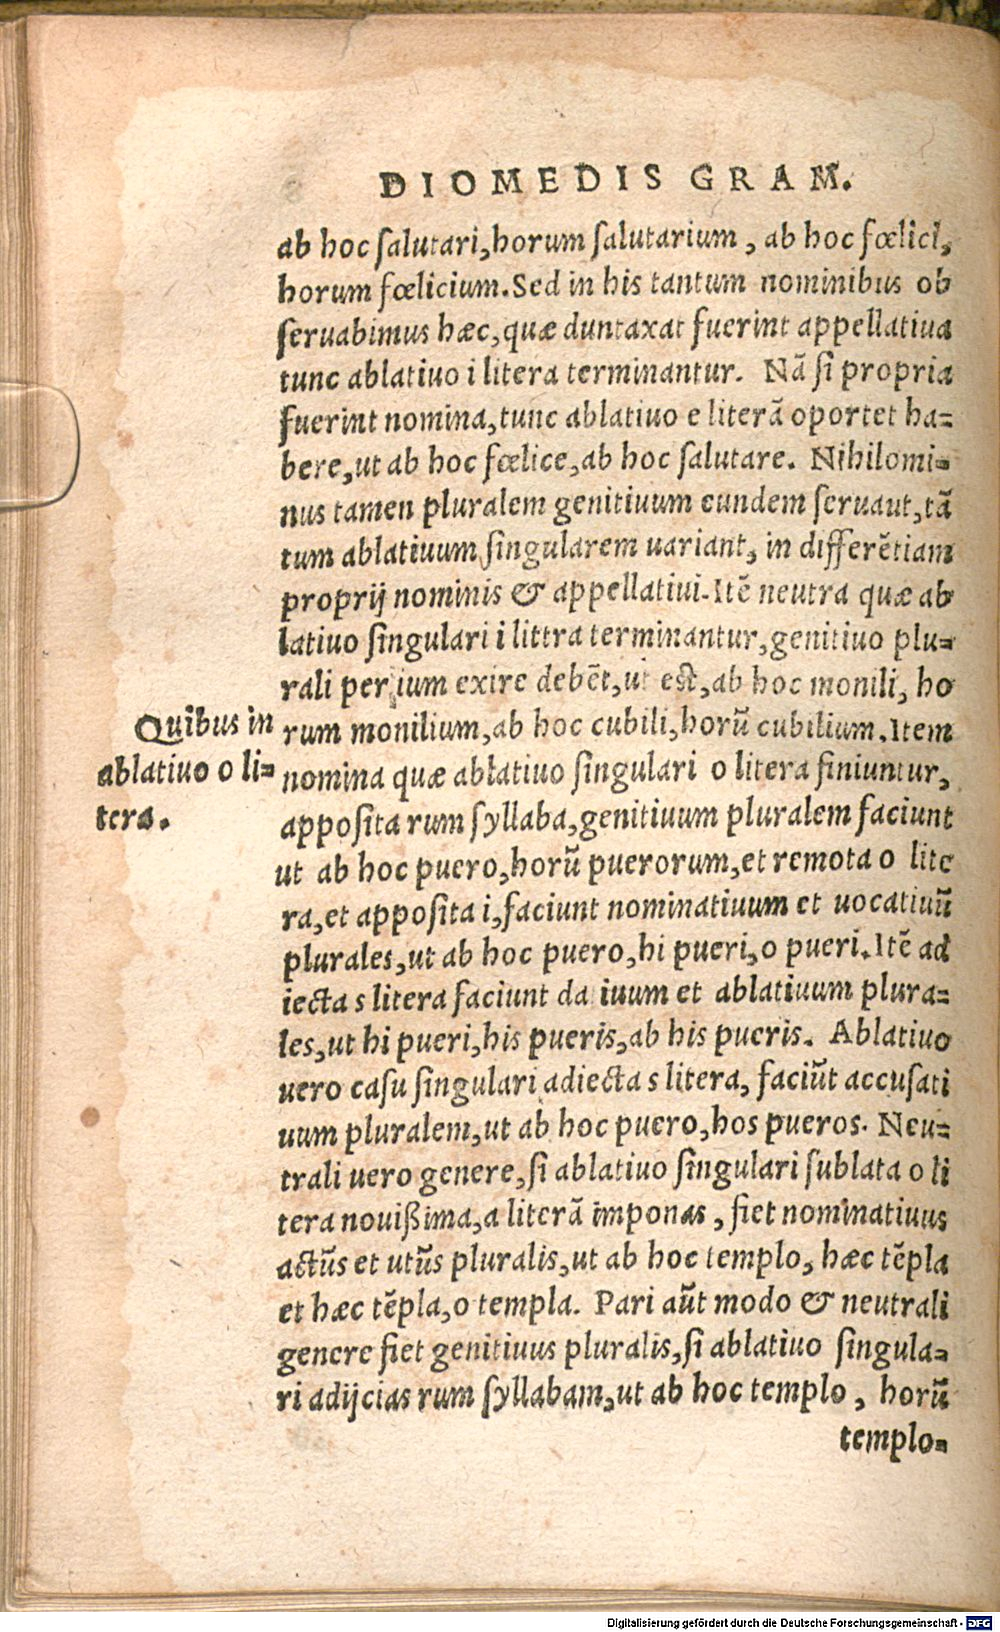 DIOMEDIS GRAM.
ab hoc salutari, horum salutarium, ab hoc fœlici,
horum fœlicium. Sed in his tantum nominibus ob
seruabimus hæc, quæ duntaxat fuerint appellatiua
tunc ablatiuo i litera terminantur. Nã si propria
fuerint nomina, tunc ablatiuo e literã oportet ha=
bere, ut ab hoc fœlice, ab hoc salutare. Nihilomi=
nus tamen pluralem genitiuum eundem seruaut, tã
tum ablatiuum singularem uariant, in differẽtiam
proprij nominis & appellatiui. Itẽ neutra quæ ab
latiuo singulari i littra terminantur, genitiuo plu=
rali per ium exire debẽt, ut est, ab hoc monili, ho
Quibus in
ablatiuo o li=
tera.
rum monilium, ab hoc cubili, horũ cubilium. Item
nomina quæ ablatiuo singulari o litera finiuntur,
apposita rum syllaba, genitiuum pluralem faciunt
ut ab hoc puero, horũ puerorum, et remota o lite
ra, et apposita i, faciunt nominatiuum et uocatiuũ
plurales, ut ab hoc puero, hi pueri, o pueri. Itẽ ad
iecta s litera faciunt da iuum et ablatiuum plura=
les, ut hi pueri, his pueris, ab his pueris. Ablatiuo
uero casu singulari adiecta s litera, faciũt accusati
uum pluralem, ut ab hoc puero, hos pueros. Neu=
trali uero genere, si ablatiuo singulari sublata o li
tera nouißima, a literã imponas, fiet nominatiuus
actũs et utũs pluralis, ut ab hoc templo, hæc tẽpla
et hæc tẽpla, o templa. Pari aũt modo & neutrali
genere fiet genitiuus pluralis, si ablatiuo singula=
ri adijcias rum syllabam, ut ab hoc templo, horũ
templo=
Digitalisierung gefördert durch die Deutsche Forschungsgemeinschaft - DFG